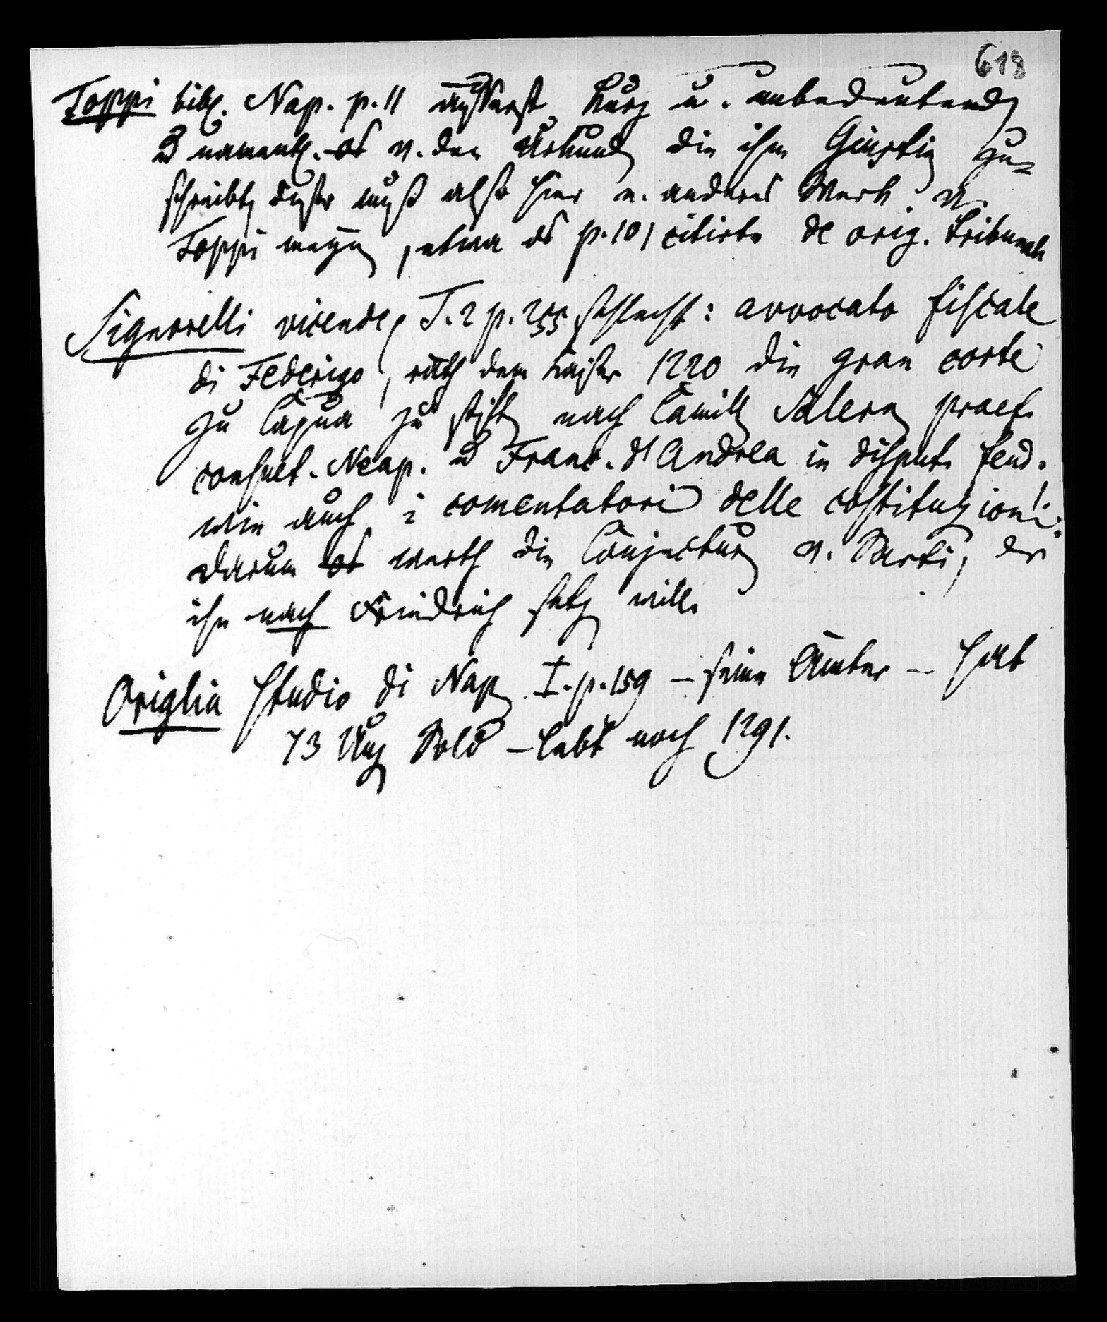 618
Toppi bibl. Nap. p. 11 äusserst kurz u. unbedeutend
u namentl. v. den Urkund die ihm Giustin zu=
schreibt, dieser muß also hier e. anderes Werk v.
Toppi meyn, etwa das p. 101 citirte de orig. tribunal
Signorelli vicende T. 2 p. 255 schlecht: avvocato fiscale
di Federigo, räth dem Kaiser 1220 die gran corte
zu Capua zu stift nach Camill Salern praef.
consult. Neap. u Franc. d'Andrea in disput. feud.
wie auch i comentatori delle costituzioni:
darum werth die Conjectur v. Sarti, der
ihn nach Friedrich setz will.
Origlia Studio di Nap I. p. 159 – seine Ämter – hat
73 Unz Sold – lebt noch 1291.